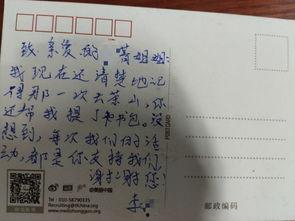 致亲爱的
姐姐:
我现在还清楚地记
得那一次去茶山,你
还帮我提了书包。没
想到,每次我们的活
动,都是你支持我们
谢谢您!
李
POSTCARD
美丽中国
Tel: 010-58790335
Recruiting@tfchina.org
www.meilizhongguo.org
邮政编码